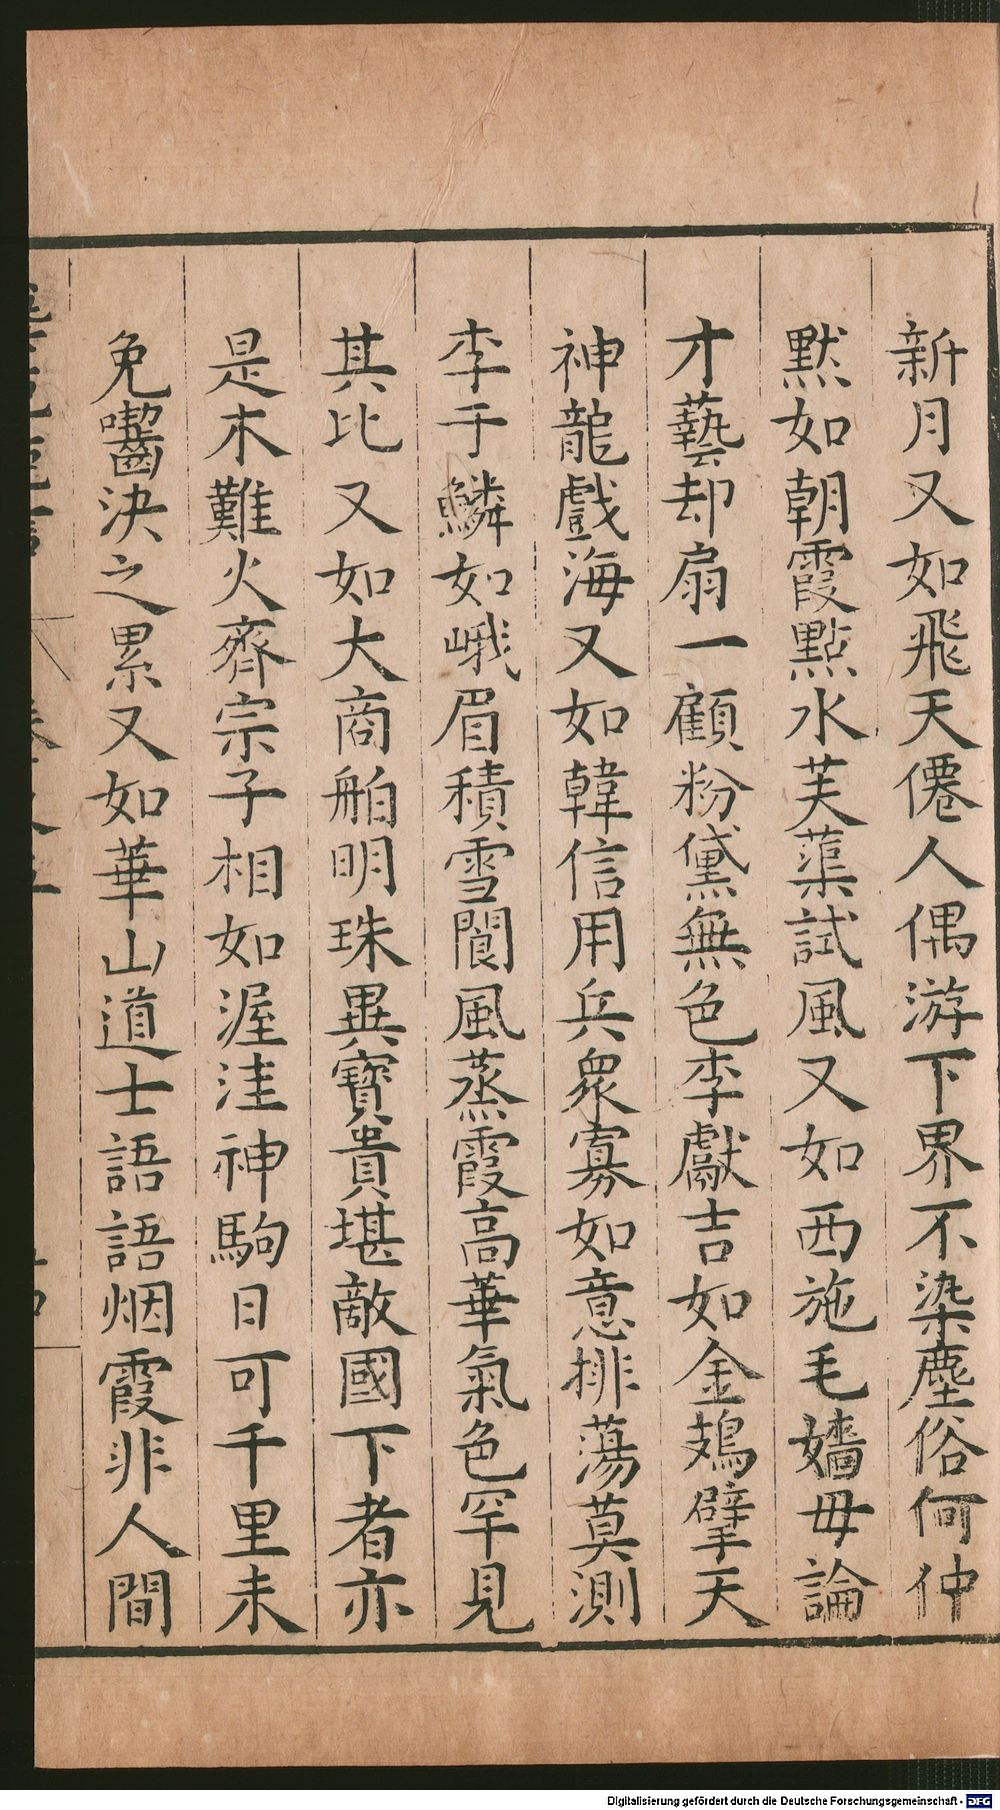 新月又如飛天僊人偶游下界不染塵俗何仲
黙如朝霞點水芙蕖試風又如西施毛嬙毋論
才藝却扇一顧粉黛無色李獻吉如金鳷擘天
神龍戲海又如韓信用兵眾寡如意排蕩莫測
李于鱗如峨眉積雪閬風蒸霞高華氣色罕見
其比又如大商舶明珠異寶貴堪敵國下者亦
是木難火齊宗子相如渥洼神駒日可千里未
免嚙決之累又如華山道士語語烟霞非人間
Digitalisierung gefördert durch die Deutsche Forschungsgemeinschaft - DFG